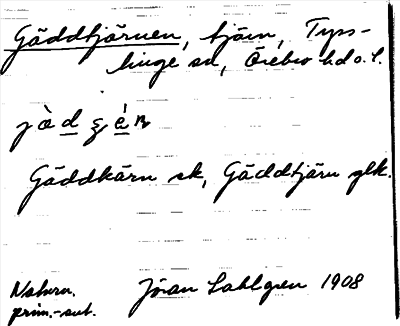 Gäddtjärnen, tjärn, Tyss-
linge sn, Örebro hd o. l.
Gäddkärn sk, Gäddtjärn glk.
Naturn.
prim.-sut.
Jöran Sahlgren 1908